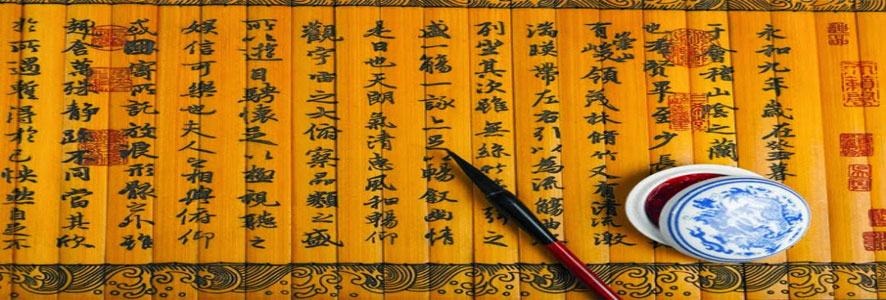 永和九年歲在癸丑暮春
于會稽山陰之蘭
也羣賢畢至少長
有崇山峻領茂林脩竹又有清流激
湍暎帶左右引以為流觴曲
列坐其次雖無絲竹管弦之
盛一觴一詠亦足以暢敘幽情
是日也天朗氣清惠風和暢仰
觀宇宙之大俯察品類之盛
所以遊目騁懷足以極視聽之
娛信可樂也夫人之相與俯仰
或因寄所託放浪形骸之外雖
趣舍萬殊靜躁不同當其欣
於所遇暫得於己怏然自足不